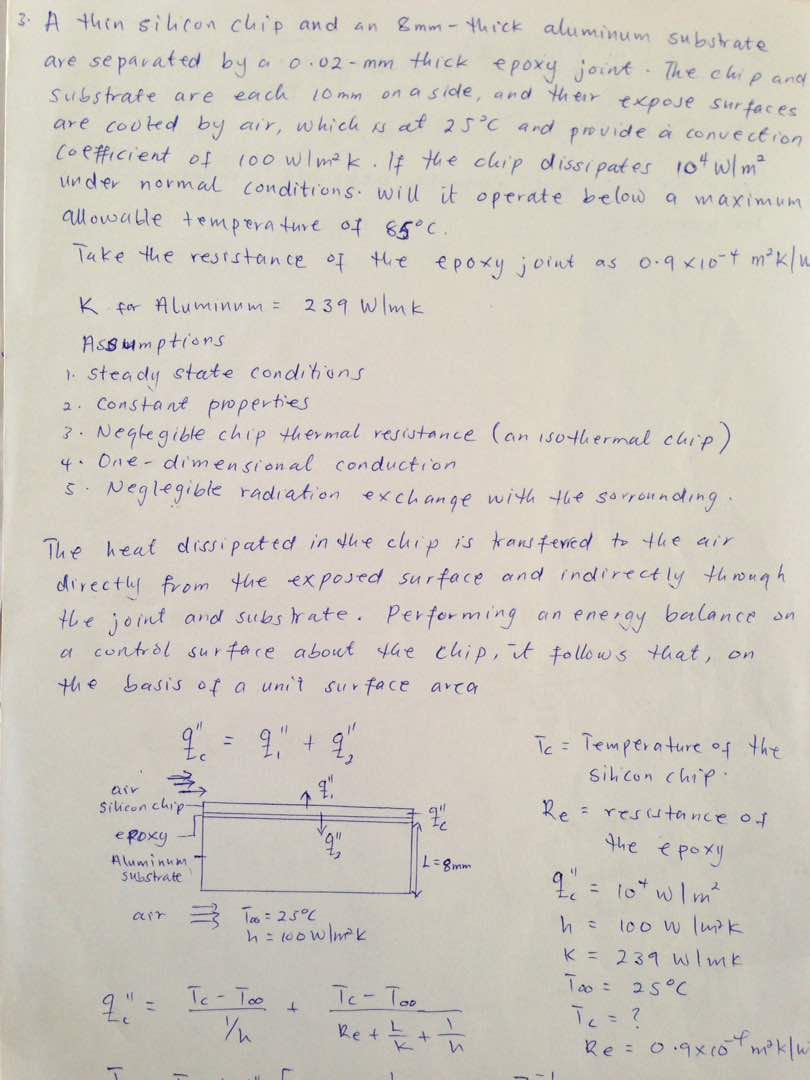 3. A thin silicon chip and an 8mm-thick aluminum substrate
are separated by a 0.02-mm thick epoxy joint. The chip and
substrate are each 10mm on a side, and their expose surfaces
are cooled by air, which is at 25°C and provide a convection
coefficient of 100 W/m²K. If the chip dissipates 10⁴ W/m²
under normal conditions. Will it operate below a maximum
allowable temperature of 85°C.
Take the resistance of the epoxy joint as 0.9 x 10⁻⁴ m²K/W
K for Aluminum = 239 W/mK
Assumptions
1. Steady state conditions
2. Constant properties
3. Neglegible chip thermal resistance (an isothermal chip)
4. One-dimensional conduction
5. Neglegible radiation exchange with the sorrounding.
The heat dissipated in the chip is transferred to the air
directly from the exposed surface and indirectly through
the joint and substrate. Performing an energy balance on
a control surface about the chip, it follows that, on
the basis of a unit surface area
q"c = q"1 + q"2
air
silicon chip
epoxy
Aluminum
substrate
q"1
q"2
q"c
L = 8mm
air
T∞ = 25°C
h = 100 W/m²K
Tc = Temperature of the
silicon chip.
Re = resistance of
the epoxy
q"c = 10⁴ W/m²
h = 100 W/m²K
K = 239 W/mK
T∞ = 25°C
Tc = ?
Re = 0.9x10⁻⁴ m²K/W
q"c = (Tc - T∞)/(1/h) + (Tc - T∞)/(Re + L/K + 1/h)